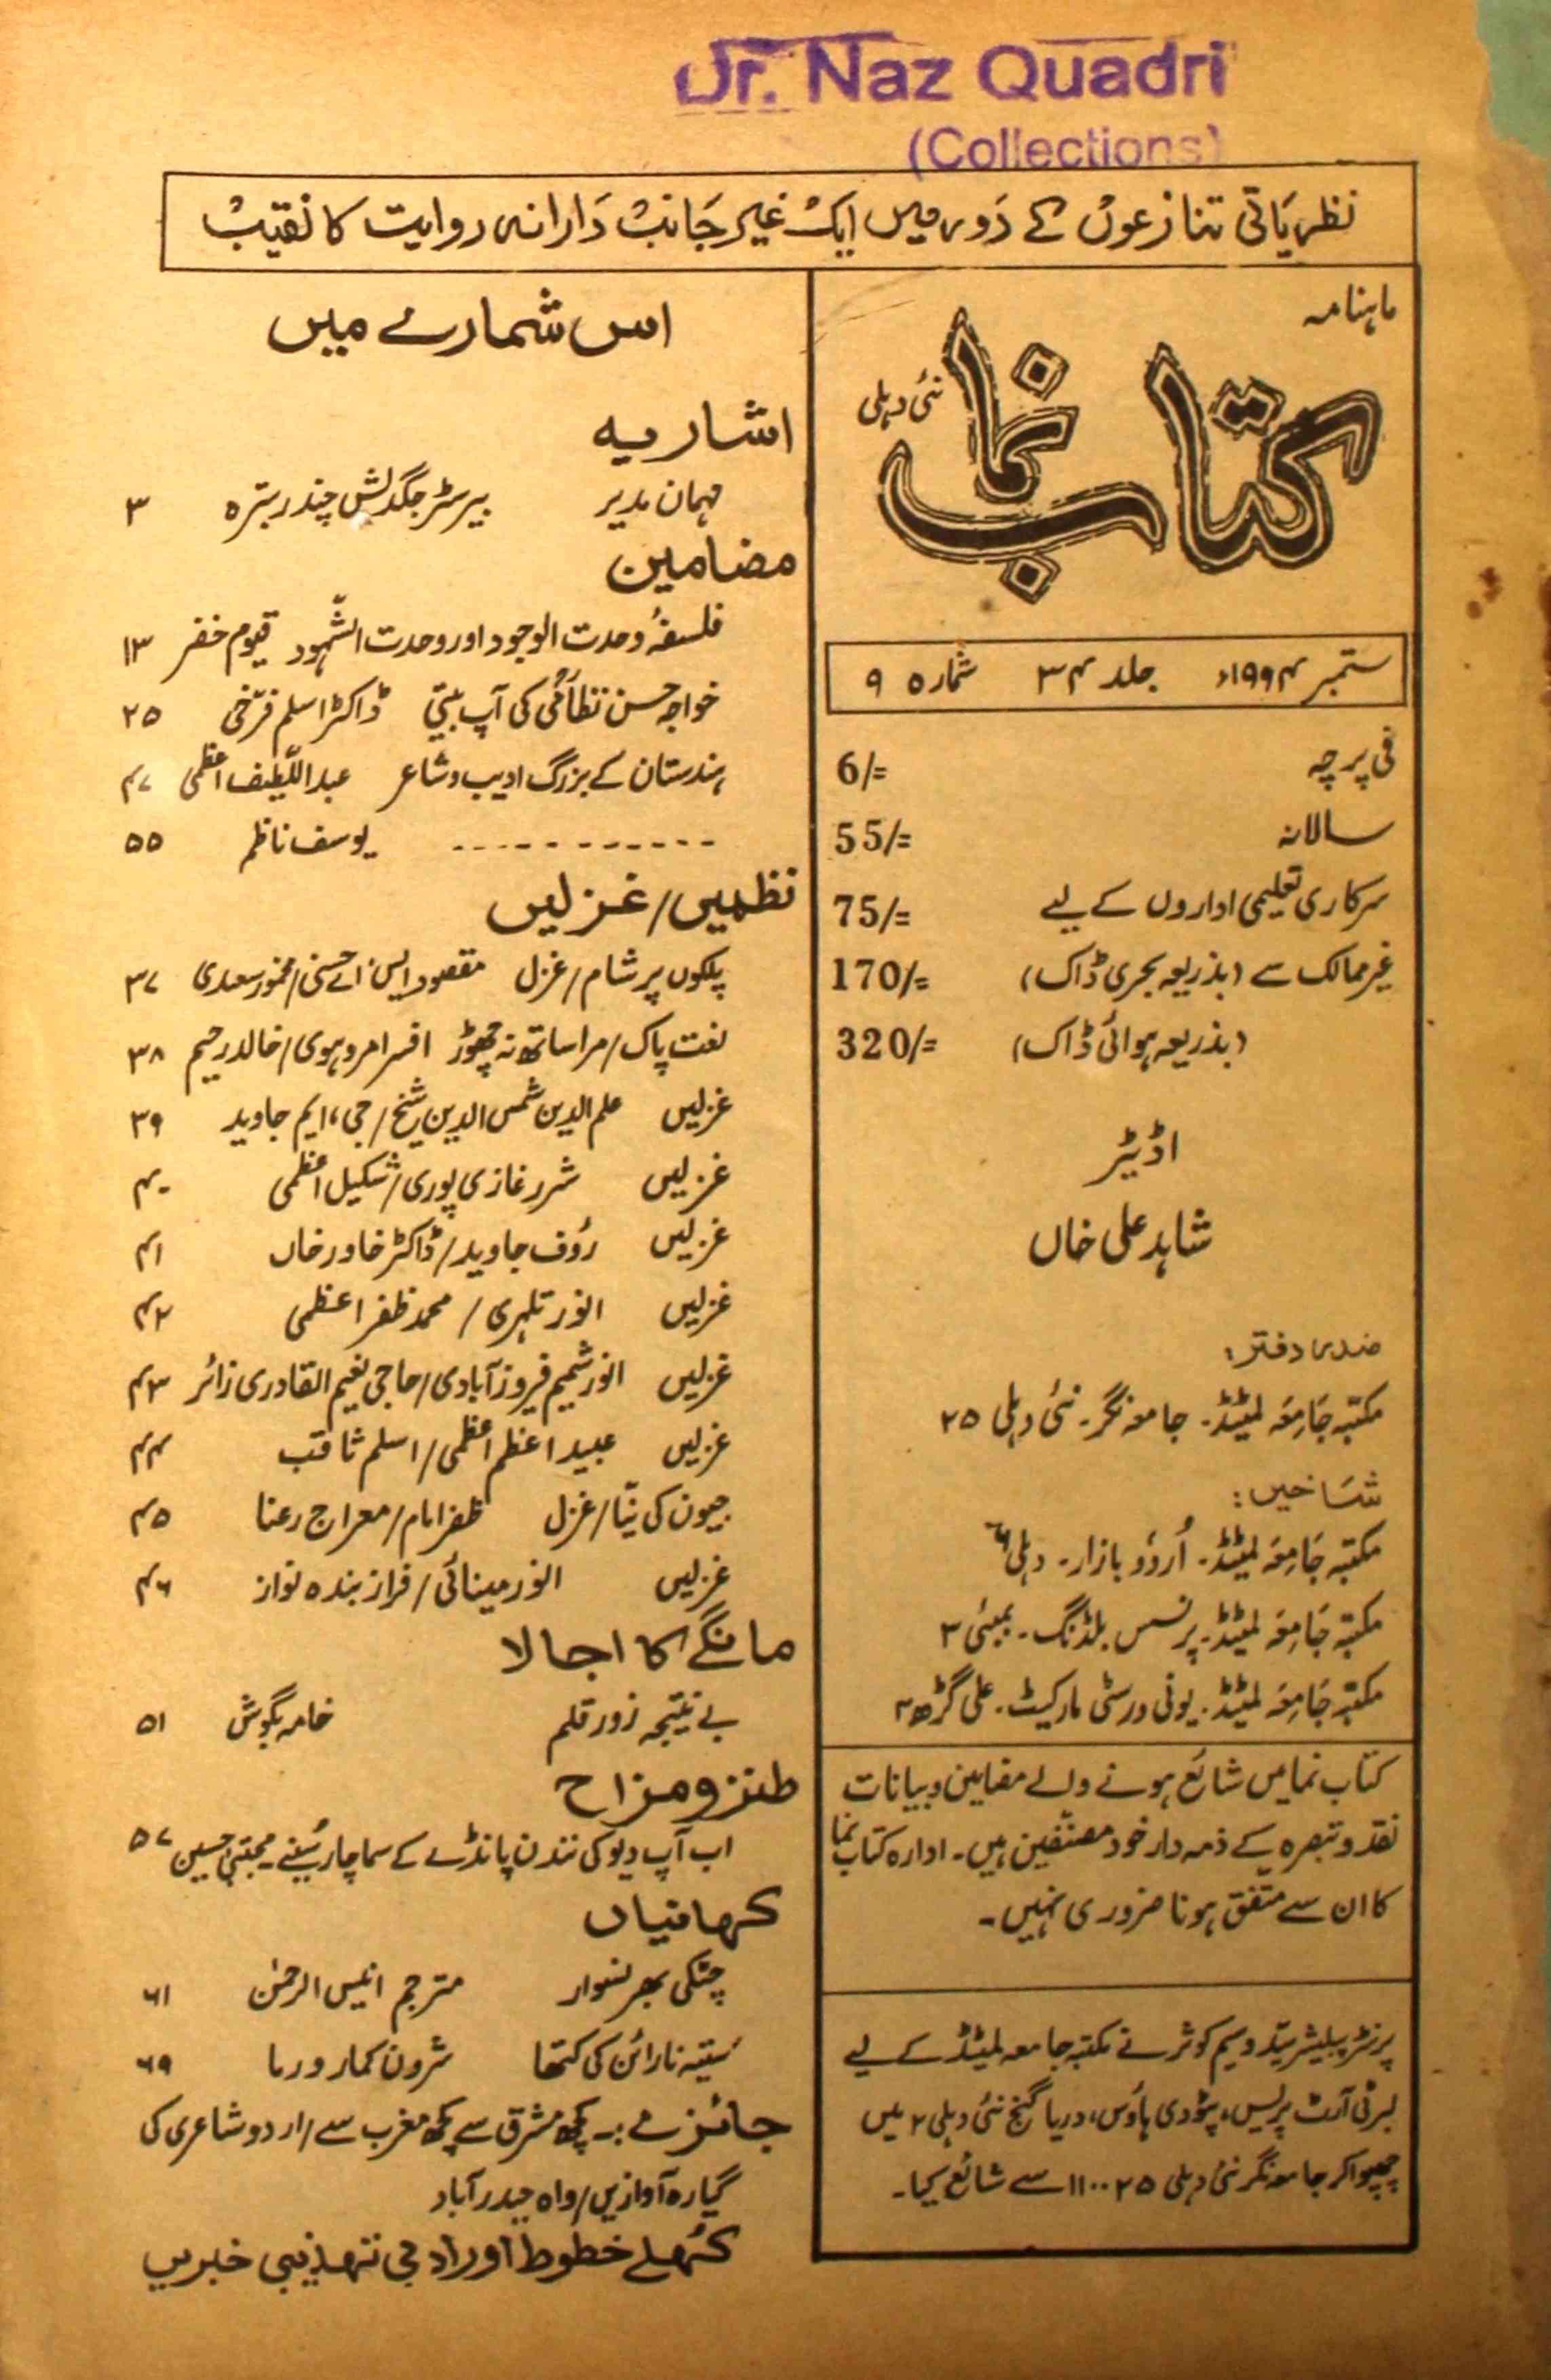 Dr. Naz Quadri
(Collections)
نظریاتی تنازعوں کے دور میں ایک غیر جانب دارانہ روایت کا نقیب
ماہنامہ
کتاب نما
نئی دہلی
ستمبر ۱۹۹۴ء جلد ۳۴ شمارہ ۹
فی پرچہ 6/=
سالانہ 55/=
سرکاری تعلیمی اداروں کے لیے 75/=
غیر ممالک سے (بذریعہ بحری ڈاک) 170/=
(بذریعہ ہوائی ڈاک) 320/=
اڈیٹر
شاہد علی خاں
صدر دفتر:
مکتبہ جامعہ لمیٹڈ۔ جامعہ نگر۔ نئی دہلی ۲۵
شاخیں:
مکتبہ جامعہ لمیٹڈ۔ اُردو بازار۔ دہلی ۶
مکتبہ جامعہ لمیٹڈ۔ پرنسس بلڈنگ۔ بمبئی ۳
مکتبہ جامعہ لمیٹڈ۔ یونی ورسٹی مارکیٹ۔ علی گڑھ ۲
کتاب نما میں شائع ہونے والے مضامین و بیانات
نقد و تبصرہ کے ذمہ دار خود مصنفین ہیں۔ ادارہ کتاب نما
کا ان سے متفق ہونا ضروری نہیں۔
پرنٹر پبلیشر سید وسیم کوثر نے مکتبہ جامعہ لمیٹڈ کے لیے
لبرٹی آرٹ پریس، پٹودی ہاؤس، دریا گنج نئی دہلی ۲ میں
چھپوا کر جامعہ نگر نئی دہلی ۱۱۰۰۲۵ سے شائع کیا۔
اس شمارے میں
اشاریہ
مہمان مدیر بیرسٹر جگدیش چندر بترہ ۳
مضامین
فلسفۂ وحدت الوجود اور وحدت الشّہود قیوم خضر ۱۳
خواجہ حسن نظامی کی آپ بیتی ڈاکٹر اسلم فرّخی ۲۵
ہندستان کے بزرگ ادیب و شاعر عبداللّطیف اعظمی ۴۷
۔۔۔۔۔۔۔۔۔۔۔ یوسف ناظم ۵۵
نظمیں/غزلیں
پلکوں پر شام/غزل مقصود ایس اے حسنی/مخمور سعیدی ۳۷
نعت پاک/مرا ساتھ نہ چھوڑ افسر امروہوی/خالد رحیم ۳۸
غزلیں علم الدین شمس الدین شیخ/جی، ایم جاوید ۳۹
غزلیں شرر غازی پوری/شکیل اعظمی ۴۰
غزلیں رؤف جاوید/ڈاکٹر خاور خاں ۴۱
غزلیں انور تلہری/محمد ظفر اعظمی ۴۲
غزلیں انور شمیم فیروز آبادی/حاجی نعیم القادری زائر ۴۳
غزلیں عبید اعظم اعظمی/اسلم ثاقب ۴۴
جیون کی نیّا/غزل ظفر امام/معراج رعنا ۴۵
غزلیں انور مینائی/فراز بندہ نواز ۴۶
مانگے کا اجالا
بے نتیجہ زور قلم خامہ بگوش ۵۱
طنز و مزاح
اب آپ دیوکی نندن پانڈے کے سماچار سُنیے مجتبیٰ حسین ۵۷
کہانیاں
چٹکی بھر نسوار مترجم انیس الرحمٰن ۶۱
ستیہ نارائن کی کتھا شرون کمار ورما ۶۹
جائزے :۔ کچھ مشرق سے کچھ مغرب سے/اردو شاعری کی
گیارہ آوازیں/واہ حیدرآباد
کھلے خطوط اور ادبی تہذیبی خبریں